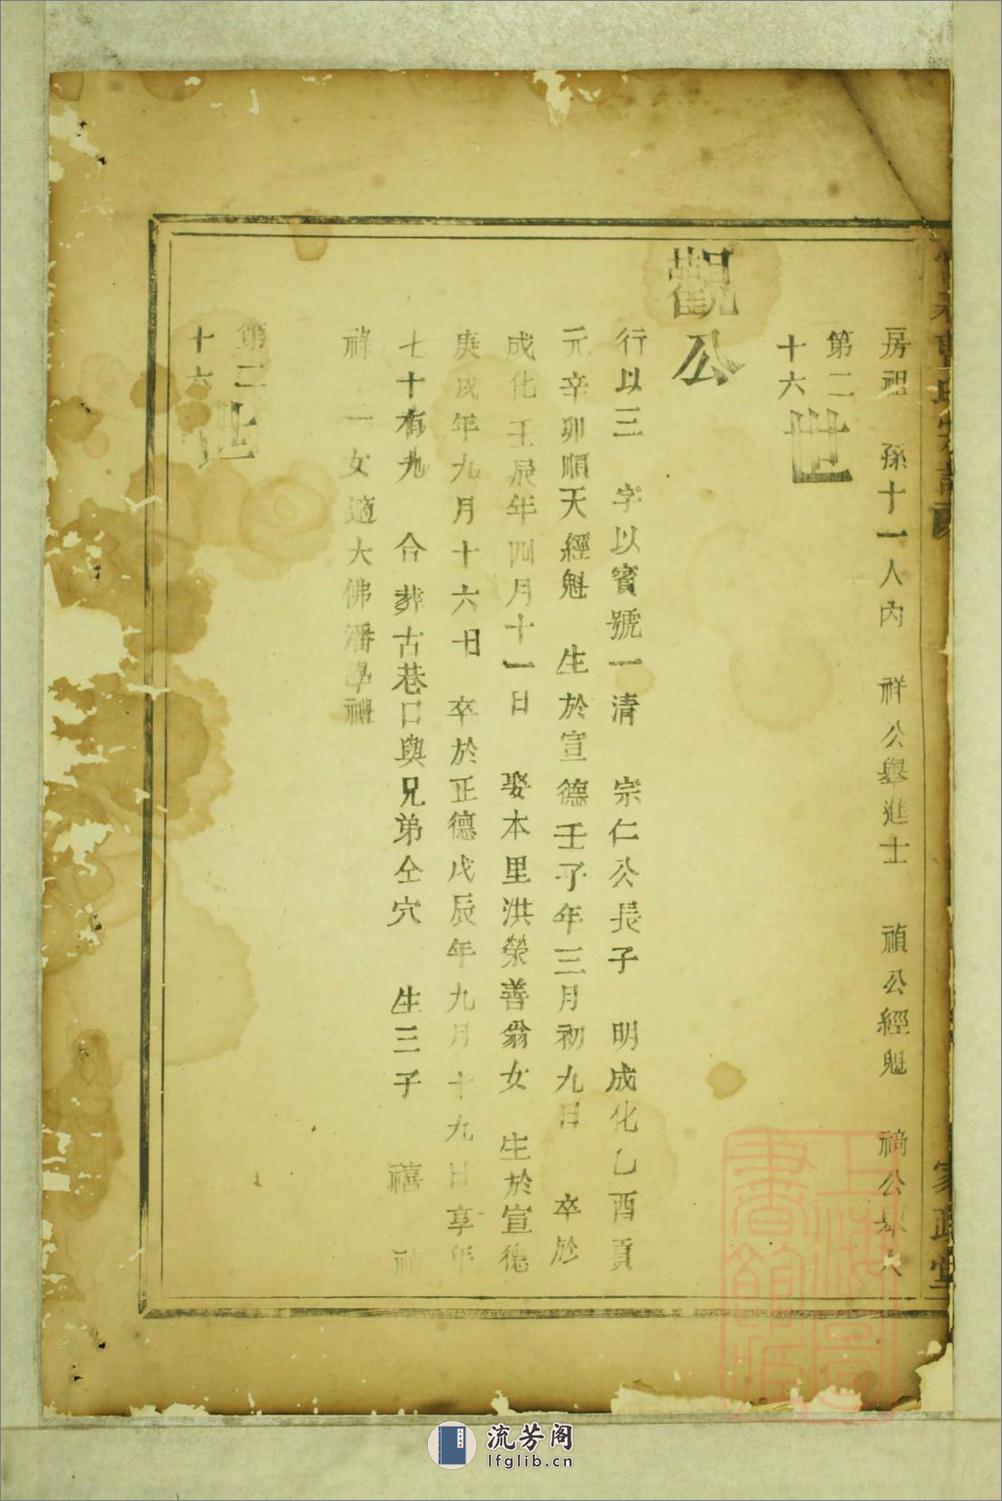 房祖 孫十一人內 祥公舉進士 禎公經魁 公
第二十六世
觀公
行以三 字以賓號一清 宗仁公長子 明成化乙酉貢
元辛卯順天經魁 生於宣德壬子年三月初九日 卒於
成化壬辰年四月十一日 娶本里洪榮善翁女 生於宣德
庚戌年九月十六日 卒於正德戊辰年九月十九日享年
七十有九 合葬古巷口與兄弟仝穴 生三子 禧
祿 一女適大佛潘學禮
第二十六世
家政堂
上海圖書館藏
流芳阁
lfglib.cn